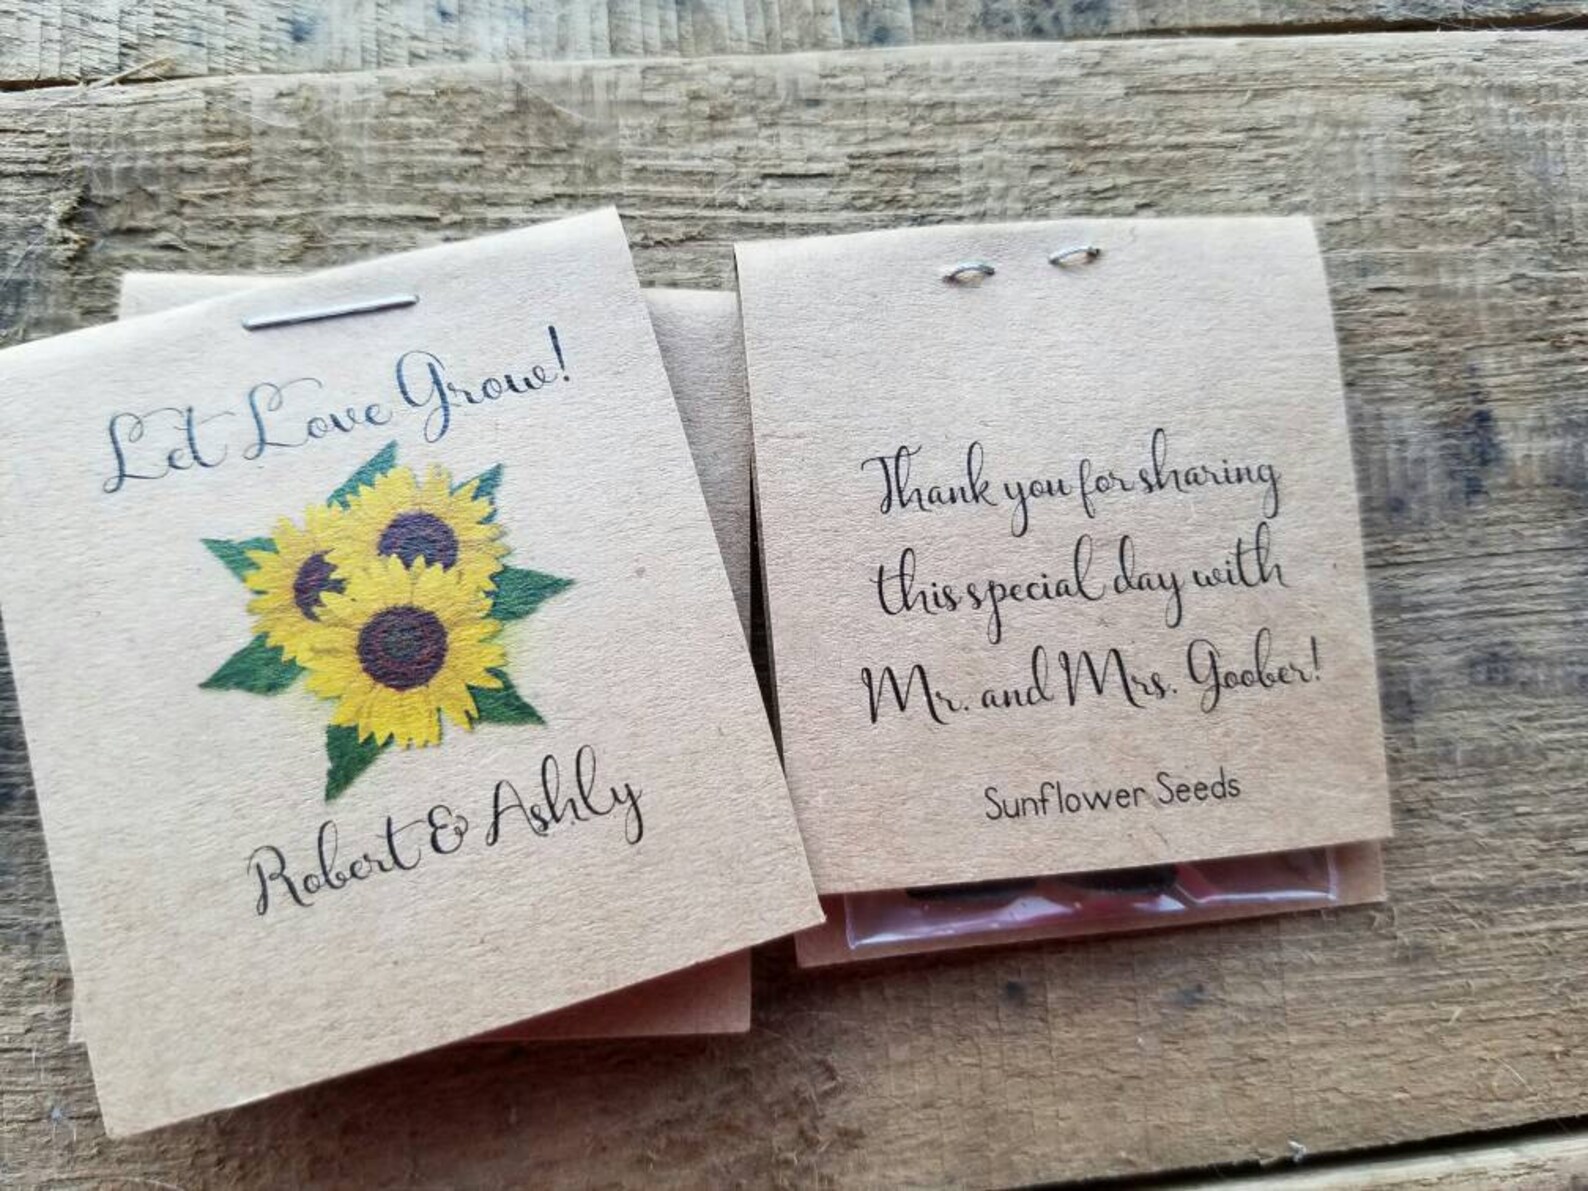 Let Love Grow!
Robert & Ashly
Thank you for sharing
this special day with
Mr. and Mrs. Goober!
Sunflower Seeds